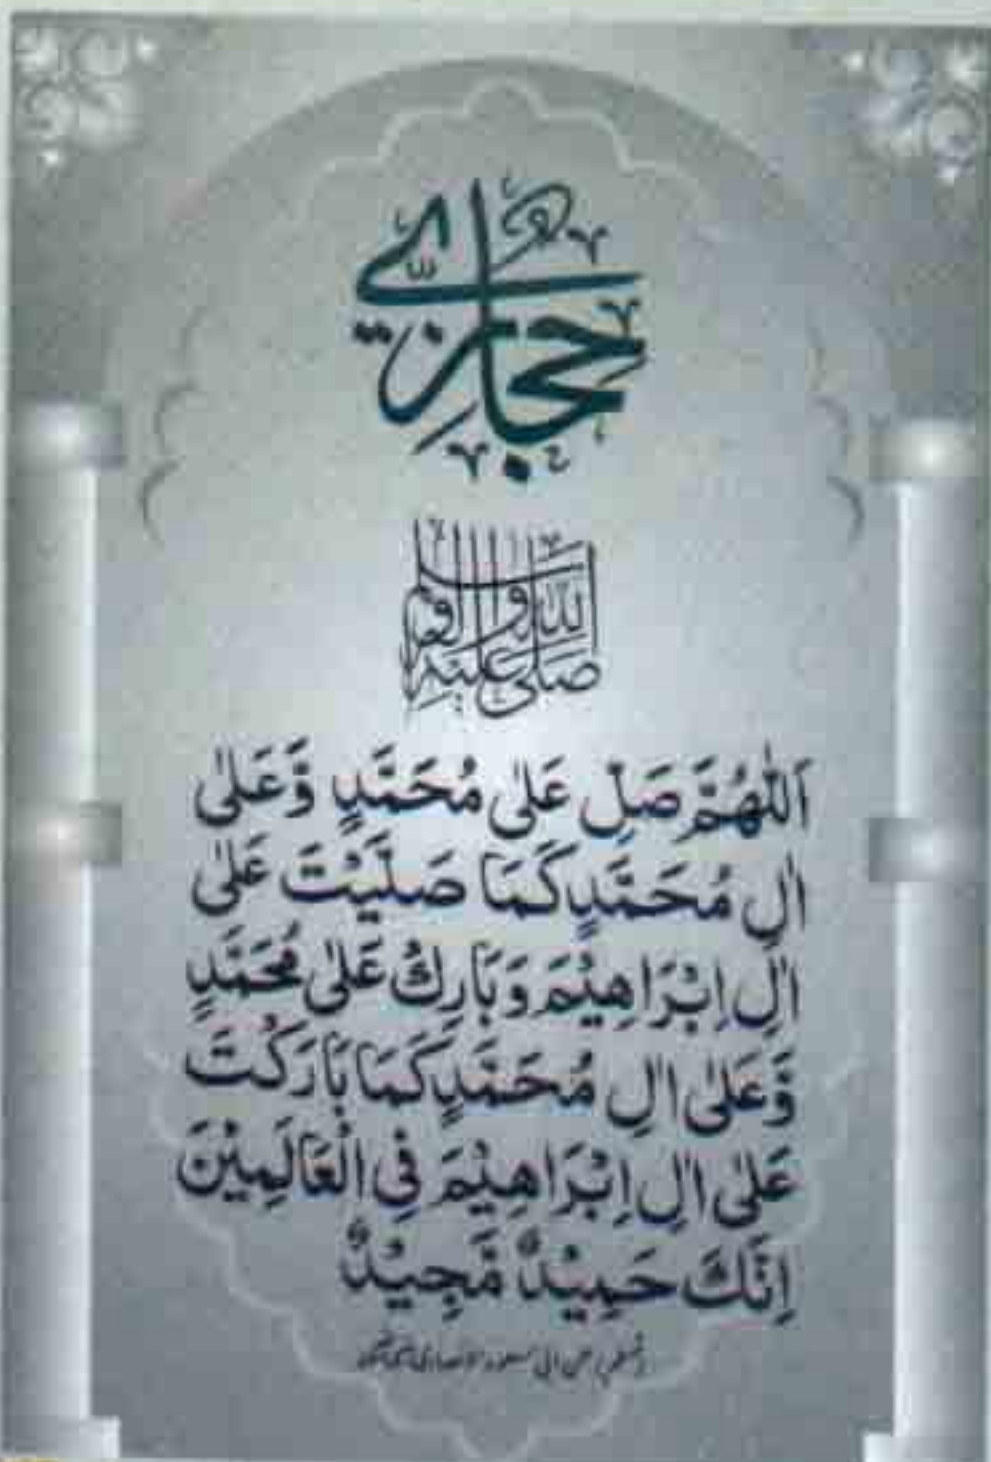 حِجَازِيٌّ
صَلَّى اللّٰهُ عَلَيْهِ وَآلِهٖ وَسَلَّمَ
اَللّٰهُمَّ صَلِّ عَلٰى مُحَمَّدٍ وَّعَلٰى
اٰلِ مُحَمَّدٍ كَمَا صَلَّيْتَ عَلٰى
اٰلِ اِبْرَاهِيْمَ وَبَارِكْ عَلٰى مُحَمَّدٍ
وَّعَلٰى اٰلِ مُحَمَّدٍ كَمَا بَارَكْتَ
عَلٰى اٰلِ اِبْرَاهِيْمَ فِي الْعَالَمِيْنَ
اِنَّكَ حَمِيْدٌ مَّجِيْدٌ
عن ابی مسعود الانصاری